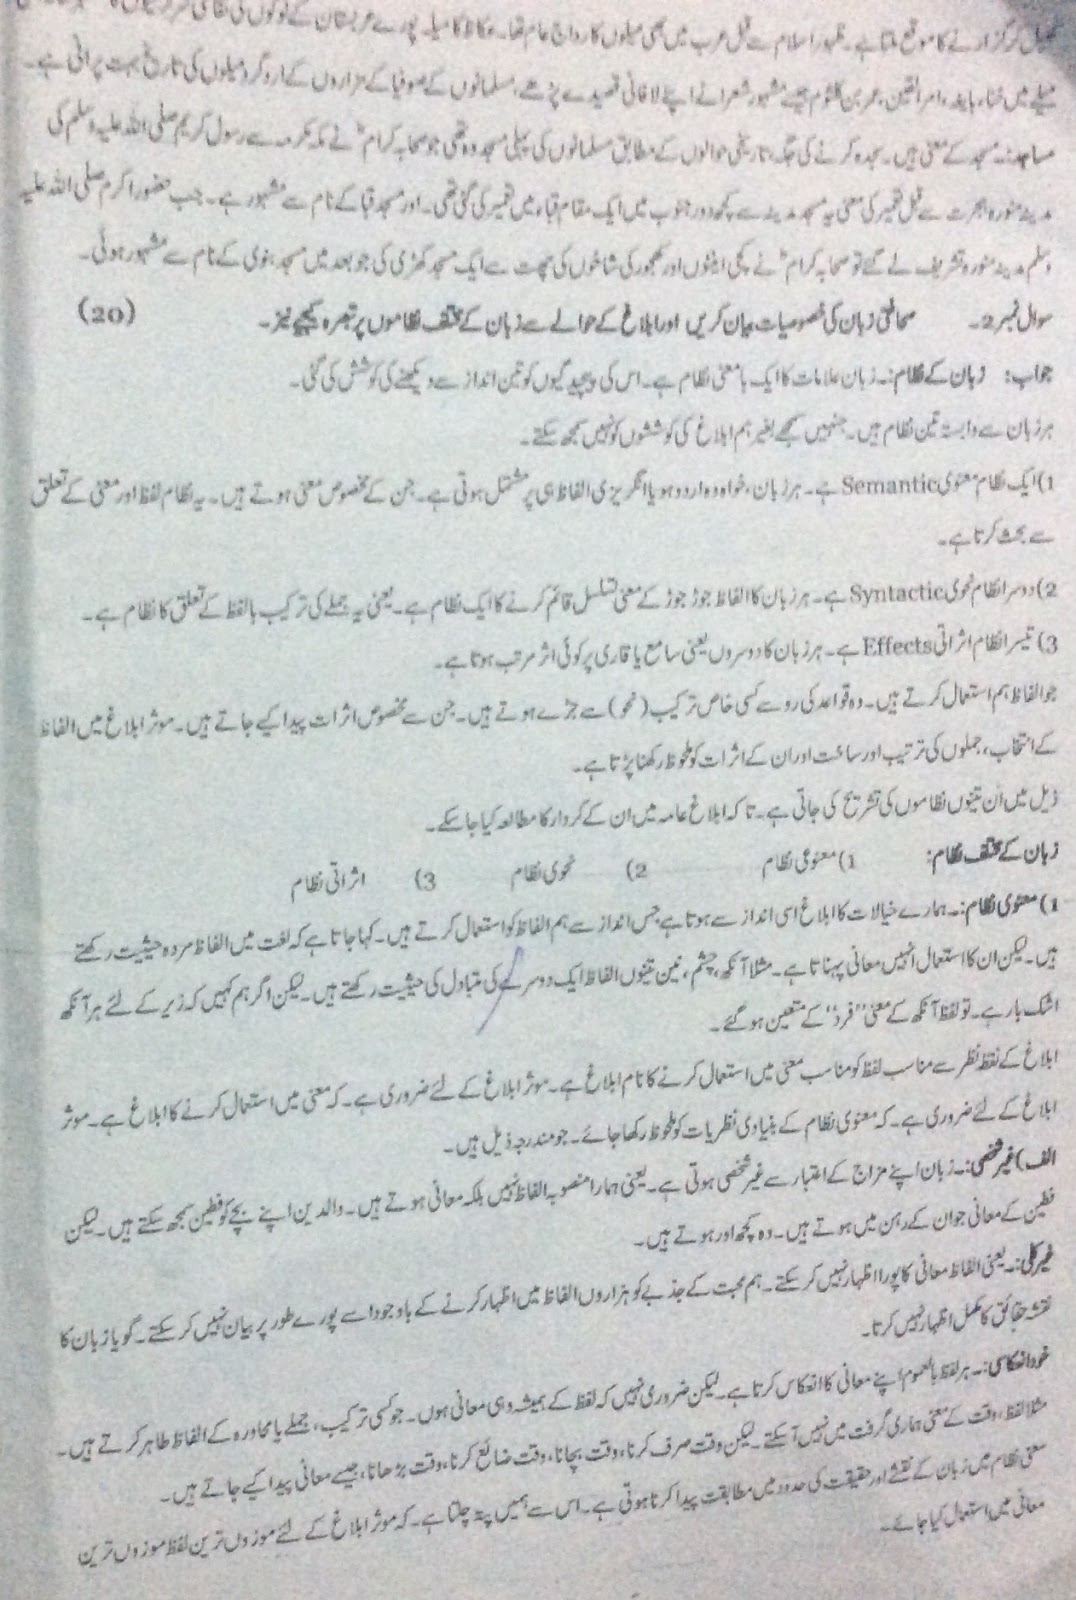 کر گزارنے کا موقع ملتا ہے۔ ظہور اسلام سے قبل عرب میں بھی میلوں کا رواج عام تھا۔ عکاظ کا میلہ پورے عربستان کے لوگوں کی ثقافتی سرگرمیوں کا
میلے میں خنساء، امراء القیس، عمر بن کلثوم جیسے مشہور شعرا نے اپنے لافانی قصیدے پڑھے، مسلمانوں کے صوفیا کے مزاروں کے ارد گرد میلوں کی تاریخ بہت پرانی ہے۔
مساجد:۔ مسجد کے معنی ہیں۔ سجدہ کرنے کی جگہ، تاریخی حوالوں کے مطابق مسلمانوں کی پہلی مسجد وہ تھی جو صحابہ کرامؓ نے مکہ مکرمہ سے رسول کریم صلی اللہ علیہ وسلم کی
مدینہ منورہ ہجرت سے قبل تعمیر کی تھی یہ مسجد مدینہ سے کچھ دور جنوب میں ایک مقام قباء میں تعمیر کی گئی تھی۔ اور مسجد قبا کے نام سے مشہور ہے۔ جب حضور اکرم صلی اللہ علیہ
وسلم مدینہ منورہ تشریف لے گئے تو صحابہ کرامؓ نے کچی اینٹوں اور کھجور کی شاخوں کی چھت سے ایک مسجد کھڑی کی جو بعد میں مسجد نبوی کے نام سے مشہور ہوئی۔
سوال نمبر 2۔ صحافتی زبان کی خصوصیات بیان کریں اور ابلاغ کے حوالے سے زبان کے مختلف نظاموں پر تبصرہ کیجیے نیز۔ (20)
جواب: زبان کے نظام:۔ زبان علامات کا ایک بامعنی نظام ہے۔ اس کی پیچیدگیوں کو تین انداز سے دیکھنے کی کوشش کی گئی۔
ہر زبان سے وابستہ تین نظام ہیں۔ جنہیں سمجھے بغیر ہم ابلاغ کی کوششوں کو نہیں سمجھ سکتے۔
1) ایک نظام معنوی Semantic ہے۔ ہر زبان، خواہ وہ اردو ہو یا انگریزی الفاظ ہی پر مشتمل ہوتی ہے۔ جن کے مخصوص معنی ہوتے ہیں۔ یہ نظام لفظ اور معنی کے تعلق
سے بحث کرتا ہے۔
2) دوسرا نظام نحوی Syntactic ہے۔ ہر زبان کا الفاظ جوڑ جوڑ کے معنی تسلسل قائم کرنے کا ایک نظام ہے۔ یعنی یہ جملے کی ترکیب بالفظ کے تعلق کا نظام ہے۔
3) تیسرا نظام اثراتی Effects ہے۔ ہر زبان کا دوسروں یعنی سامع یا قاری پر کوئی اثر مرتب ہوتا ہے۔
جو الفاظ ہم استعمال کرتے ہیں۔ وہ قواعد کی رو سے کسی خاص ترکیب (نحو) سے جڑے ہوتے ہیں۔ جن سے مخصوص اثرات پیدا کیے جاتے ہیں۔ موثر ابلاغ میں الفاظ
کے انتخاب، جملوں کی ترتیب اور ساخت اور ان کے اثرات کو ملحوظ رکھنا پڑتا ہے۔
ذیل میں ان تینوں نظاموں کی تشریح کی جاتی ہے۔ تاکہ ابلاغ عامہ میں ان کے کردار کا مطالعہ کیا جا سکے۔
زبان کے مختلف نظام: 1) معنوی نظام 2) نحوی نظام 3) اثراتی نظام
1) معنوی نظام:۔ ہمارے خیالات کا ابلاغ اسی انداز سے ہوتا ہے جس انداز سے ہم الفاظ کو استعمال کرتے ہیں۔ کہا جاتا ہے کہ لغت میں الفاظ مردہ حیثیت رکھتے
ہیں۔ لیکن ان کا استعمال انہیں معانی پہناتا ہے۔ مثلا آنکھ، چشم، نین تینوں الفاظ ایک دوسرے کی متبادل کی حیثیت رکھتے ہیں۔ لیکن اگر ہم کہیں کہ زیر کے لئے ہر آنکھ
اشک بار ہے۔ تو لفظ آنکھ کے معنی "فرد" کے متعین ہو گئے۔
ابلاغ کے نقطہ نظر سے مناسب لفظ کو مناسب معنی میں استعمال کرنے کا نام ابلاغ ہے۔ موثر ابلاغ کے لئے ضروری ہے۔ کہ معنی میں استعمال کرنے کا ابلاغ ہے۔ موثر
ابلاغ کے لئے ضروری ہے۔ کہ معنوی نظام کے بنیادی نظریات کو ملحوظ رکھا جائے۔ جو مندرجہ ذیل ہیں۔
الف) غیر شخصی:۔ زبان اپنے مزاج کے اعتبار سے غیر شخصی ہوتی ہے۔ یعنی ہمارا منصوبہ الفاظ نہیں بلکہ معانی ہوتے ہیں۔ والدین اپنے بچے کو فطین سمجھ سکتے ہیں۔ لیکن
فطین کے معانی جو ان کے ذہن میں ہوتے ہیں۔ وہ کچھ اور ہوتے ہیں۔
غیر کلی:۔ یعنی الفاظ معانی کا پورا اظہار نہیں کر سکتے۔ ہم محبت کے جذبے کو ہزاروں الفاظ میں اظہار کرنے کے باوجود اسے پورے طور پر بیان نہیں کر سکتے۔ گویا زبان کا
نقشہ حقائق کا مکمل اظہار نہیں کرتا۔
خود انعکاسی:۔ ہر لفظ بالعموم اپنے معانی کا انعکاس کرتا ہے۔ لیکن ضروری نہیں کہ لفظ کے ہمیشہ وہی معانی ہوں۔ جو کسی ترکیب، جملے یا محاورہ کے الفاظ ظاہر کرتے ہیں۔
مثلا لفظ، وقت کے معنی ہماری گرفت میں نہیں آ سکتے۔ لیکن وقت صرف کرنا، وقت بچانا، وقت ضائع کرنا، وقت بڑھانا، جیسے معانی پیدا کیے جاتے ہیں۔
معنی نظام میں زبان کے نقشے اور حقیقت کی حدود میں مطابقت پیدا کرنا ہوتی ہے۔ اس سے ہمیں پتہ چلتا ہے۔ کہ موثر ابلاغ کے لئے موزوں ترین لفظ موزوں ترین
معانی میں استعمال کیا جائے۔